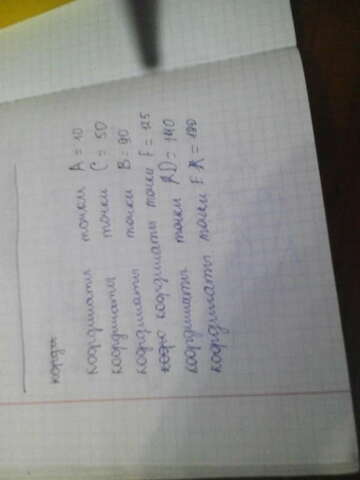 корды
координаты точки A = 10
координаты точки C = 50
координаты точки B = 90
коро координаты точки F = 125
координаты точки D = 140
координаты точки K = 180